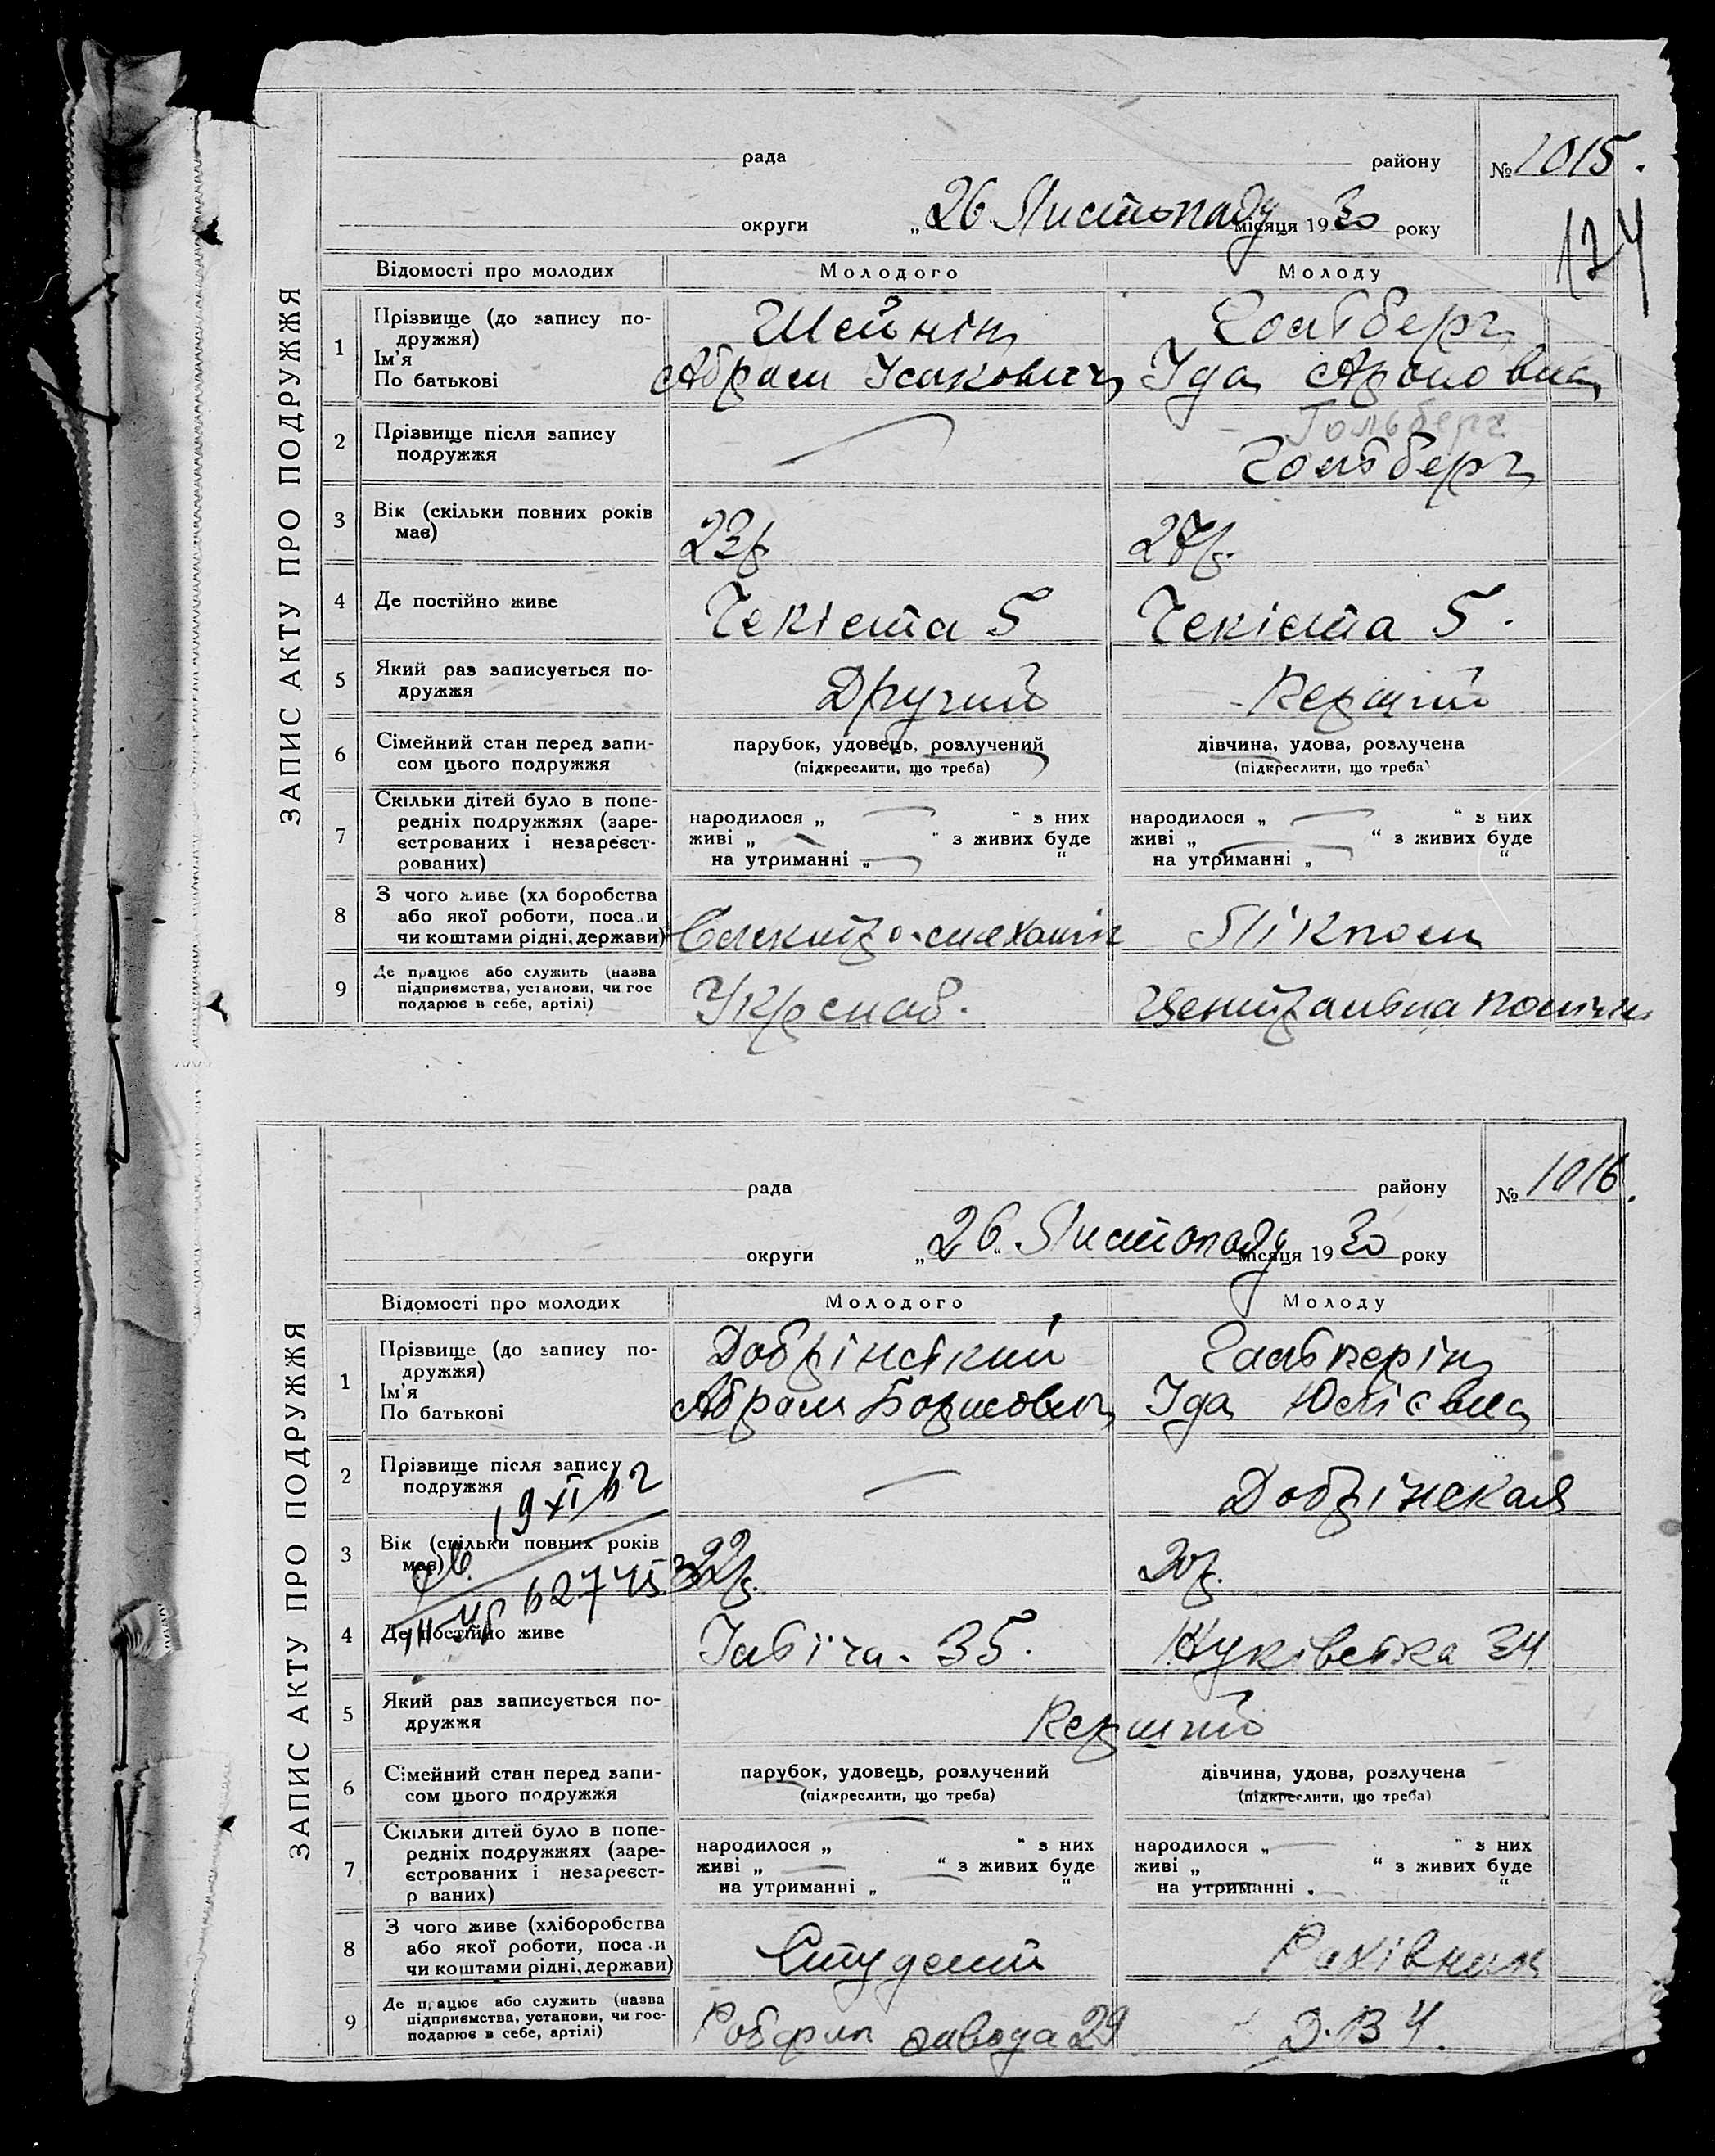 ЗАПИС АКТУ ПРО ПОДРУЖЖЯ
рада району № 1015.
округи „26 Листопаду місяця 1930 року
124
Відомості про молодих Молодого Молоду
1 Прізвище (до запису подружжя) Шейнін Гольберг
Ім'я
По батькові Абрам Ісакович Іда Ароновна
2 Прізвище після запису подружжя — Гольберг
Гольберг
3 Вік (скільки повних років має) 23р 27р.
4 Де постійно живе Чекіста 5 Чекіста 5.
5 Який раз записується подружжя Другий Перший
6 Сімейний стан перед записом цього подружжя парубок, удовець, розлучений дівчина, удова, розлучена
(підкреслити, що треба) (підкреслити, що треба)
7 Скільки дітей було в попередніх подружжях (зареєстрованих і незареєстрованих) народилося „ — “ з них народилося „ — “ з них
живі „ — “ з живих буде живі „ — “ з живих буде
на утриманні „ — “ на утриманні „ — “
8 З чого живе (хл боробства або якої роботи, поса и чи коштами рідні, держави) Електро-механік Лікпом
9 Де працює або служить (назва підприємства, установи, чи гос подарює в себе, артілі) Укрснаб. Центральна
ЗАПИС АКТУ ПРО ПОДРУЖЖЯ
рада району № 1016.
округи „26 Листопаду місяця 1930 року
Відомості про молодих Молодого Молоду
1 Прізвище (до запису подружжя) Добрінський Гальперін
Ім'я
По батькові Абрам Борисович Іда Юліевна
2 Прізвище після запису подружжя — Добрінская
19 XI
3 Вік (скільки повних років має) 22р. 20р.
4 Де постійно живе 35. 34
5 Який раз записується подружжя Перший
6 Сімейний стан перед записом цього подружжя парубок, удовець, розлучений дівчина, удова, розлучена
(підкреслити, що треба) (підкреслити, що треба)
7 Скільки дітей було в попередніх подружжях (зареєстрованих і незареєстр ваних) народилося „ — “ з них народилося „ — “ з них
живі „ — “ з живих буде живі „ “ з живих буде
на утриманні „ “ на утриманні „ — “
8 З чого живе (хліборобства або якої роботи, поса и чи коштами рідні, держави) Студент Рахівник
9 Де працює або служить (назва підприємства, установи, чи господарює в себе, артілі) завода 29 Д.В 4.